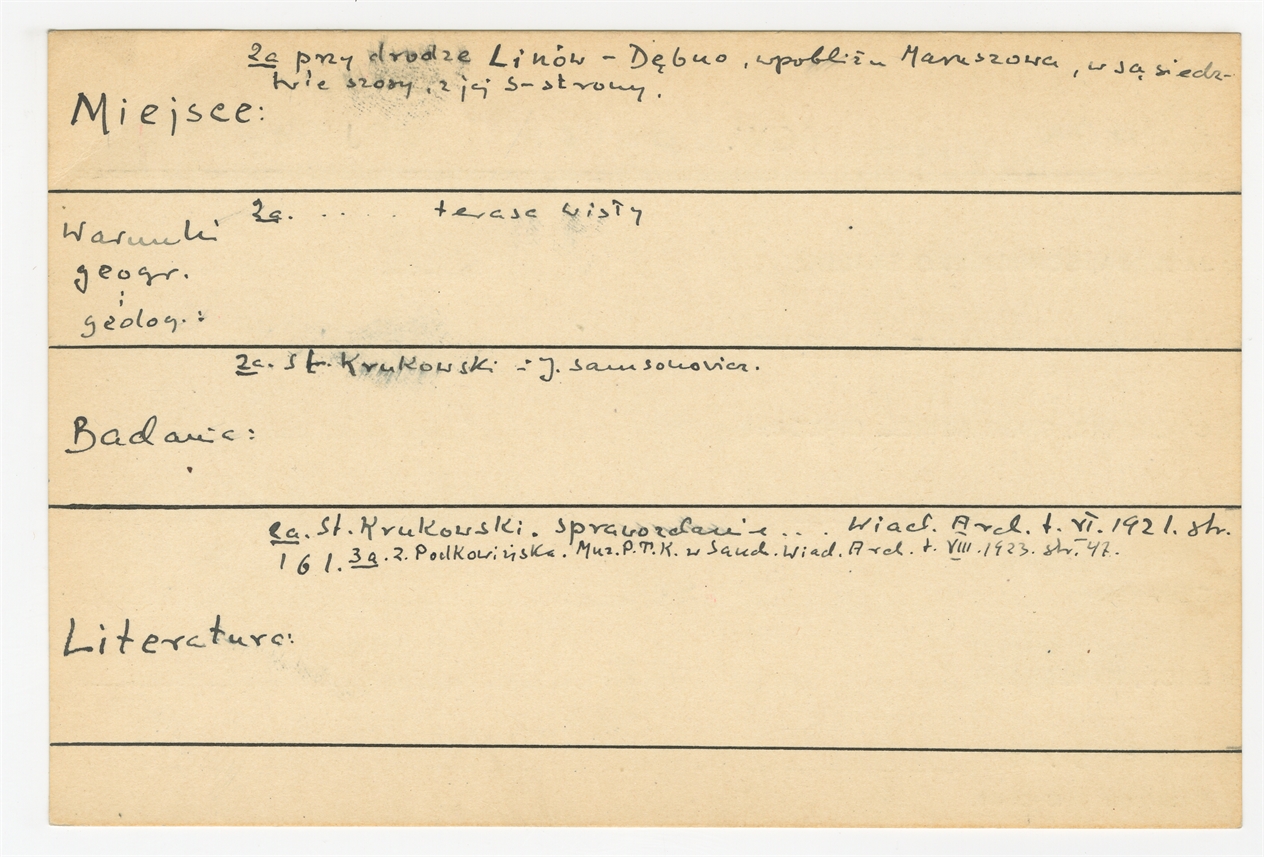 2a przy drodze Linów - Dębno, wpobliżu Maruszowa, w sąsiedz-
twie szosy, z jej S-strony.
Miejsce:
2a. . . . . . terasa Wisły
Warunki
geogr.
i
geolog.:
2a. St. Krukowski i J. Samsonowicz.
Badania:
2a. St. Krukowski. Sprawozdanie ... Wiad. Arch. t. VI. 1921. str.
161. 3a. Z. Podkowińska. Muz. P.T.K. w Sand. Wiad. Arch. t. VIII. 1923. str. 47.
Literatura: